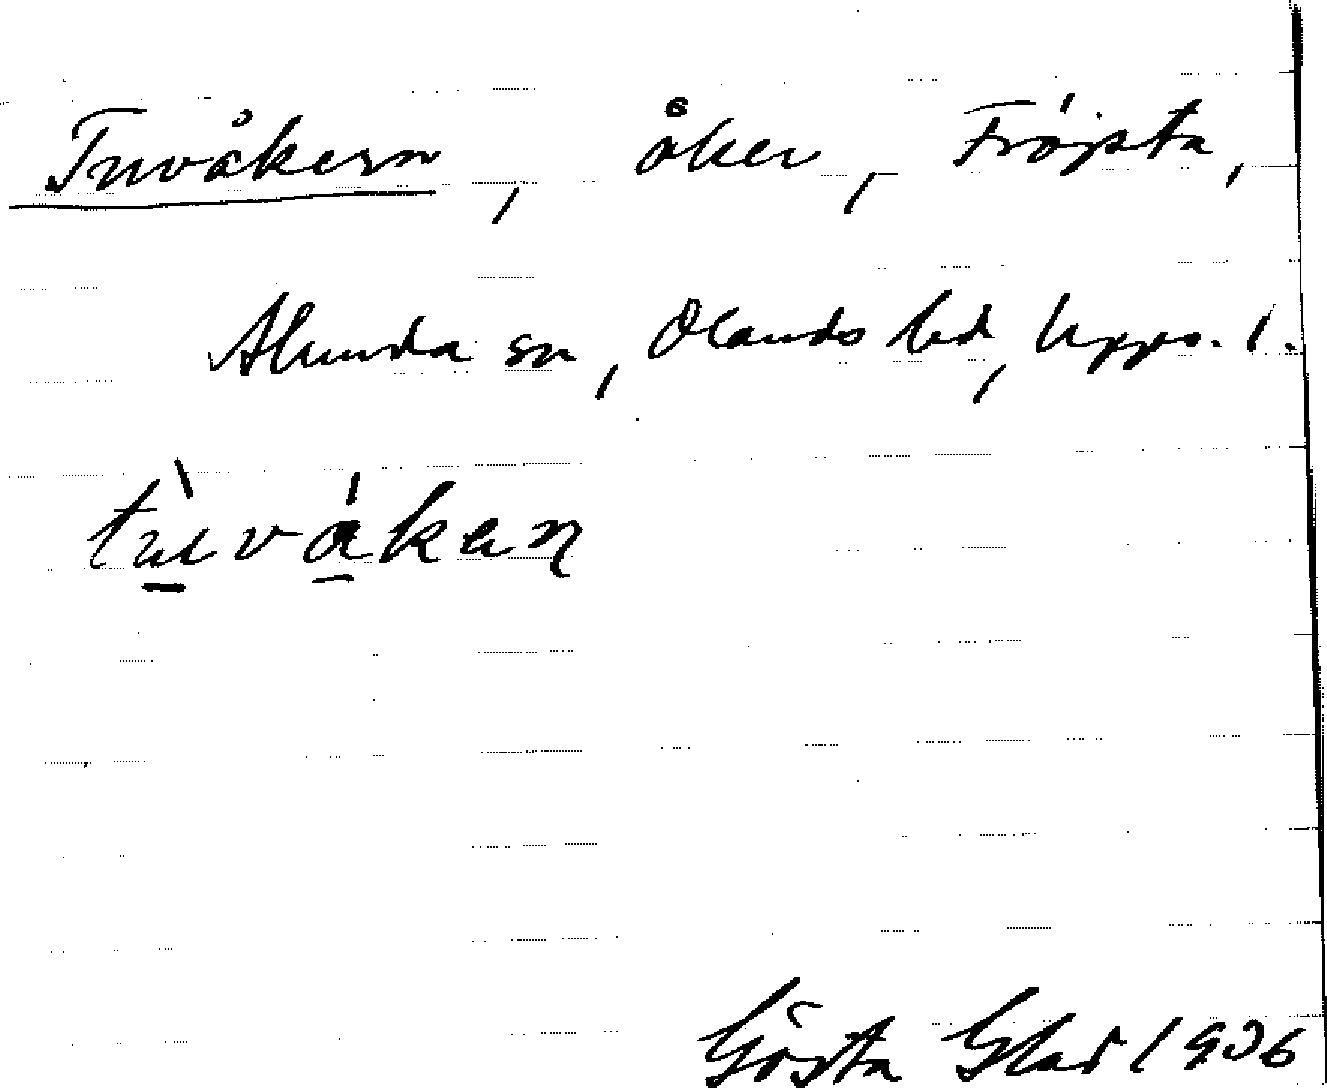 Tuvåkern, åker, Fröjsta,
Alunda sn, Olands hd, Upps. l.
tùvákan
Gösta Glad 1936